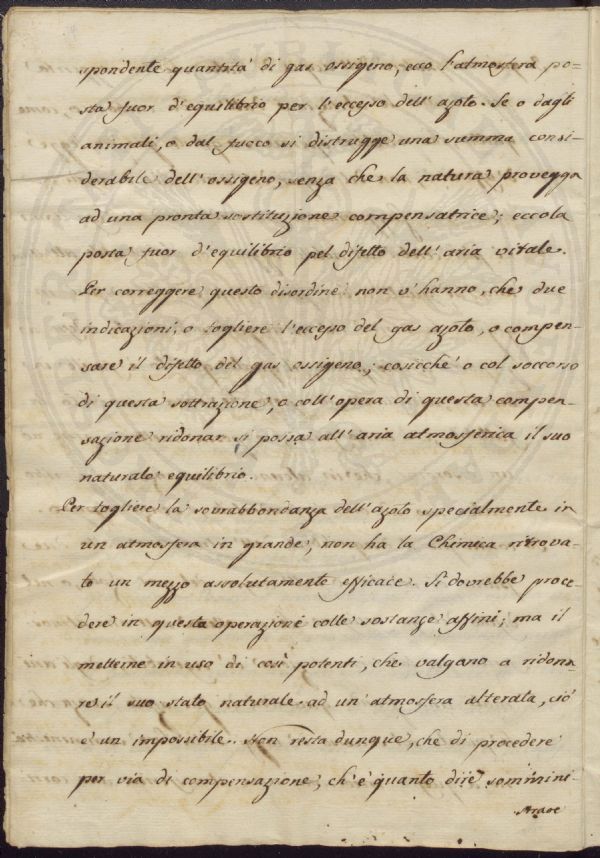 spondente quantità di gas ossigeno, ecco l'atmosfera po-
sta fuor d'equilibrio per l'eccesso dell'azoto. Se o dagli
animali, o dal fuoco si distrugge una summa consi-
derabile dell'ossigeno, senza che la natura provegga
ad una pronta sostituzione compensatrice; eccola
posta fuor d'equilibrio pel difetto dell'aria vitale.
Per correggere questo disordine non v'hanno, che due
indicazioni, o togliere l'eccesso del gas azoto, o compen-
sare il difetto del gas ossigeno; cosicché o col soccorso
di questa sottrazione, o coll'opera di questa compen-
sazione ridonar si possa all'aria atmosferica il suo
naturale equilibrio.
Per togliere la sovrabbondanza dell'azoto specialmente in
un atmosfera in grande, non ha la Chimica ritrova-
to un mezzo assolutamente efficace. Si dovrebbe proce-
dere in questa operazione colle sostanze affini; ma il
metterne in uso di così potenti, che valgano a ridona-
re il suo stato naturale ad un'atmosfera alterata, ciò
è un impossibile. Non resta dunque, che di procedere
per via di compensazione, ch'è quanto dire sommini-
strare